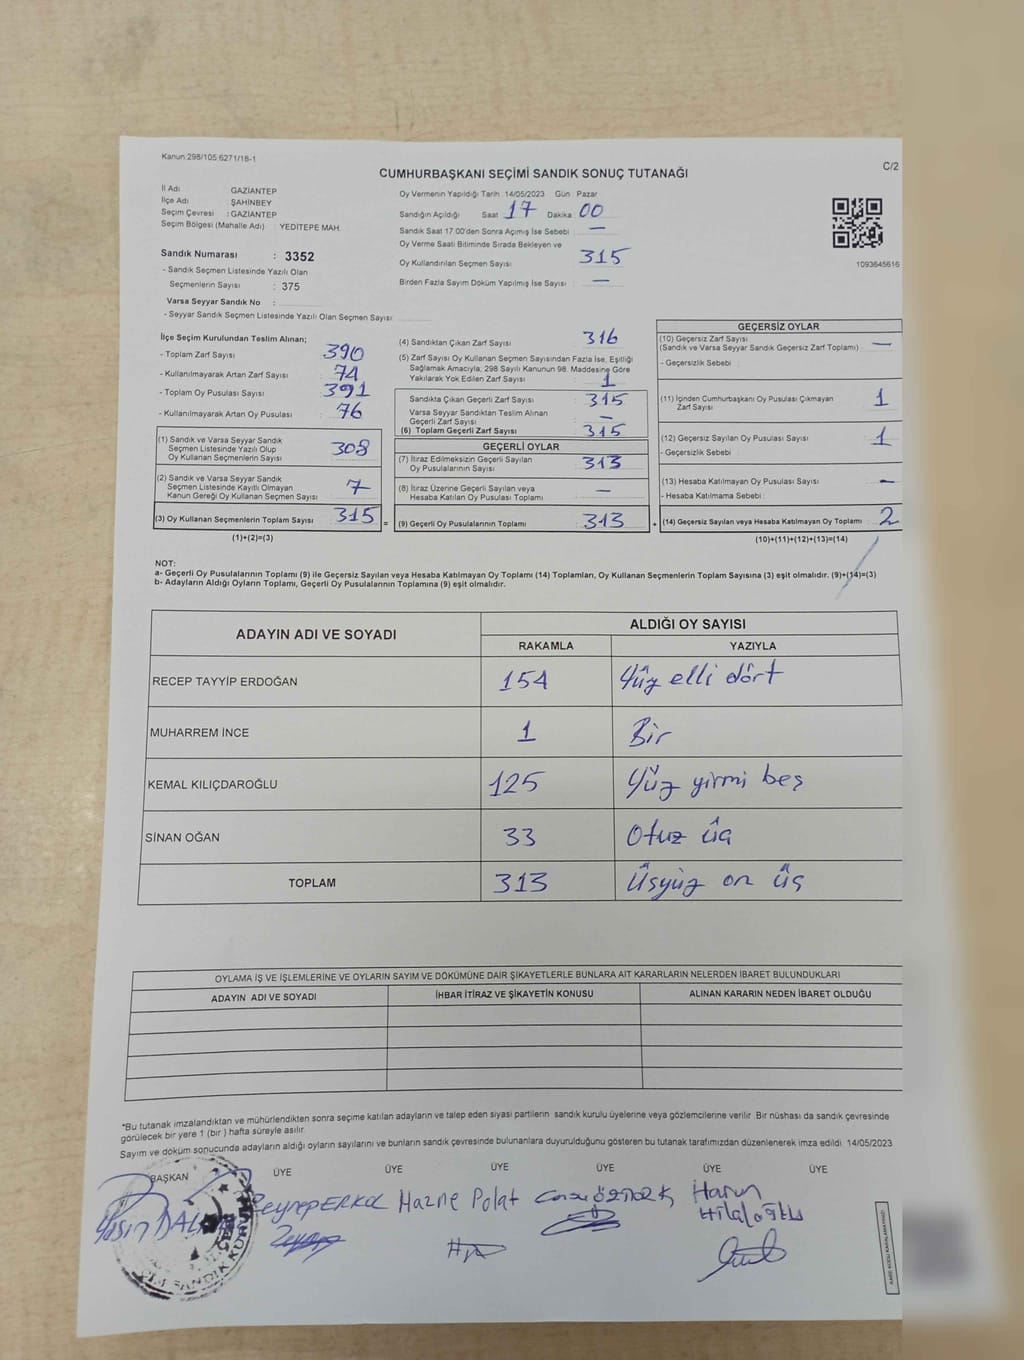 Kanun:298/105.6271/18-1
CUMHURBAŞKANI SEÇİMİ SANDIK SONUÇ TUTANAĞI
C/2
İl Adı GAZİANTEP
İlçe Adı : ŞAHİNBEY
Seçim Çevresi : GAZİANTEP
Seçim Bölgesi (Mahalle Adı) : YEDİTEPE MAH.
Sandık Numarası : 3352
- Sandık Seçmen Listesinde Yazılı Olan
Seçmenlerin Sayısı : 375
Varsa Seyyar Sandık No :
- Seyyar Sandık Seçmen Listesinde Yazılı Olan Seçmen Sayısı :
Oy Vermenin Yapıldığı Tarih :14/05/2023 Gün : Pazar
Sandığın Açıldığı Saat 17 Dakika 00
Sandık Saat 17:00'den Sonra Açımış İse Sebebi : —
Oy Verme Saati Bitiminde Sırada Bekleyen ve
Oy Kullandırılan Seçmen Sayısı 315
Birden Fazla Sayım Döküm Yapılmış İse Sayısı : —
1093645616
İlçe Seçim Kurulundan Teslim Alınan;
- Toplam Zarf Sayısı 390
- Kullanılmayarak Artan Zarf Sayısı 74
- Toplam Oy Pusulası Sayısı 391
- Kullanılmayarak Artan Oy Pusulası 76
(1) Sandık ve Varsa Seyyar Sandık
Seçmen Listesinde Yazılı Olup
Oy Kullanan Seçmenlerin Sayısı 308
(2) Sandık ve Varsa Seyyar Sandık
Seçmen Listesinde Kayıtlı Olmayan
Kanun Gereği Oy Kullanan Seçmen Sayısı 7
(3) Oy Kullanan Seçmenlerin Toplam Sayısı 315 =
(1)+(2)=(3)
(4) Sandıktan Çıkan Zarf Sayısı 316
(5) Zarf Sayısı Oy Kullanan Seçmen Sayısından Fazla İse, Eşitliği
Sağlamak Amacıyla, 298 Sayılı Kanunun 98. Maddesine Göre
Yakılarak Yok Edilen Zarf Sayısı 1
Sandıkta Çıkan Geçerli Zarf Sayısı 315
Varsa Seyyar Sandıktan Teslim Alınan
Geçerli Zarf Sayısı —
(6) Toplam Geçerli Zarf Sayısı 315
GEÇERLİ OYLAR
(7) İtiraz Edilmeksizin Geçerli Sayılan
Oy Pusulalarının Sayısı 313
(8) İtiraz Üzerine Geçerli Sayılan veya
Hesaba Katılan Oy Pusulası Toplamı —
(9) Geçerli Oy Pusulalarının Toplamı 313 +
GEÇERSİZ OYLAR
(10) Geçersiz Zarf Sayısı
(Sandık ve Varsa Seyyar Sandık Geçersiz Zarf Toplamı) —
- Geçersizlik Sebebi :
(11) İçinden Cumhurbaşkanı Oy Pusulası Çıkmayan
Zarf Sayısı 1
(12) Geçersiz Sayılan Oy Pusulası Sayısı 1
- Geçersizlik Sebebi :
(13) Hesaba Katılmayan Oy Pusulası Sayısı —
- Hesaba Katılmama Sebebi :
(14) Geçersiz Sayılan veya Hesaba Katılmayan Oy Toplamı 2
(10)+(11)+(12)+(13)=(14)
NOT:
a- Geçerli Oy Pusulalarının Toplamı (9) ile Geçersiz Sayılan veya Hesaba Katılmayan Oy Toplamı (14) Toplamları, Oy Kullanan Seçmenlerin Toplam Sayısına (3) eşit olmalıdır. (9)+(14)=(3)
b- Adayların Aldığı Oyların Toplamı, Geçerli Oy Pusulalarının Toplamına (9) eşit olmalıdır.
ADAYIN ADI VE SOYADI
ALDIĞI OY SAYISI
RAKAMLA YAZIYLA
RECEP TAYYİP ERDOĞAN 154 Yüz elli dört
MUHARREM İNCE 1 Bir
KEMAL KILIÇDAROĞLU 125 Yüz yirmi beş
SİNAN OĞAN 33 Otuz üç
TOPLAM 313 Üsyüz on üç
OYLAMA İŞ VE İŞLEMLERİNE VE OYLARIN SAYIM VE DÖKÜMÜNE DAİR ŞİKAYETLERLE BUNLARA AİT KARARLARIN NELERDEN İBARET BULUNDUKLARI
ADAYIN ADI VE SOYADI İHBAR İTİRAZ VE ŞİKAYETİN KONUSU ALINAN KARARIN NEDEN İBARET OLDUĞU
*Bu tutanak imzalandıktan ve mühürlendikten sonra seçime katılan adayların ve talep eden siyasi partilerin sandık kurulu üyelerine veya gözlemcilerine verilir. Bir nüshası da sandık çevresinde
görülecek bir yere 1 (bir) hafta süreyle asılır.
Sayım ve döküm sonucunda adayların aldığı oyların sayılarını ve bunların sandık çevresinde bulunanlara duyurulduğunu gösteren bu tutanak tarafımızdan düzenlenerek imza edildi. 14/05/2023
BAŞKAN ÜYE ÜYE ÜYE ÜYE ÜYE ÜYE
Yasin Zeynep ERKOL Hazne Polat Harun
Hilaloğlu